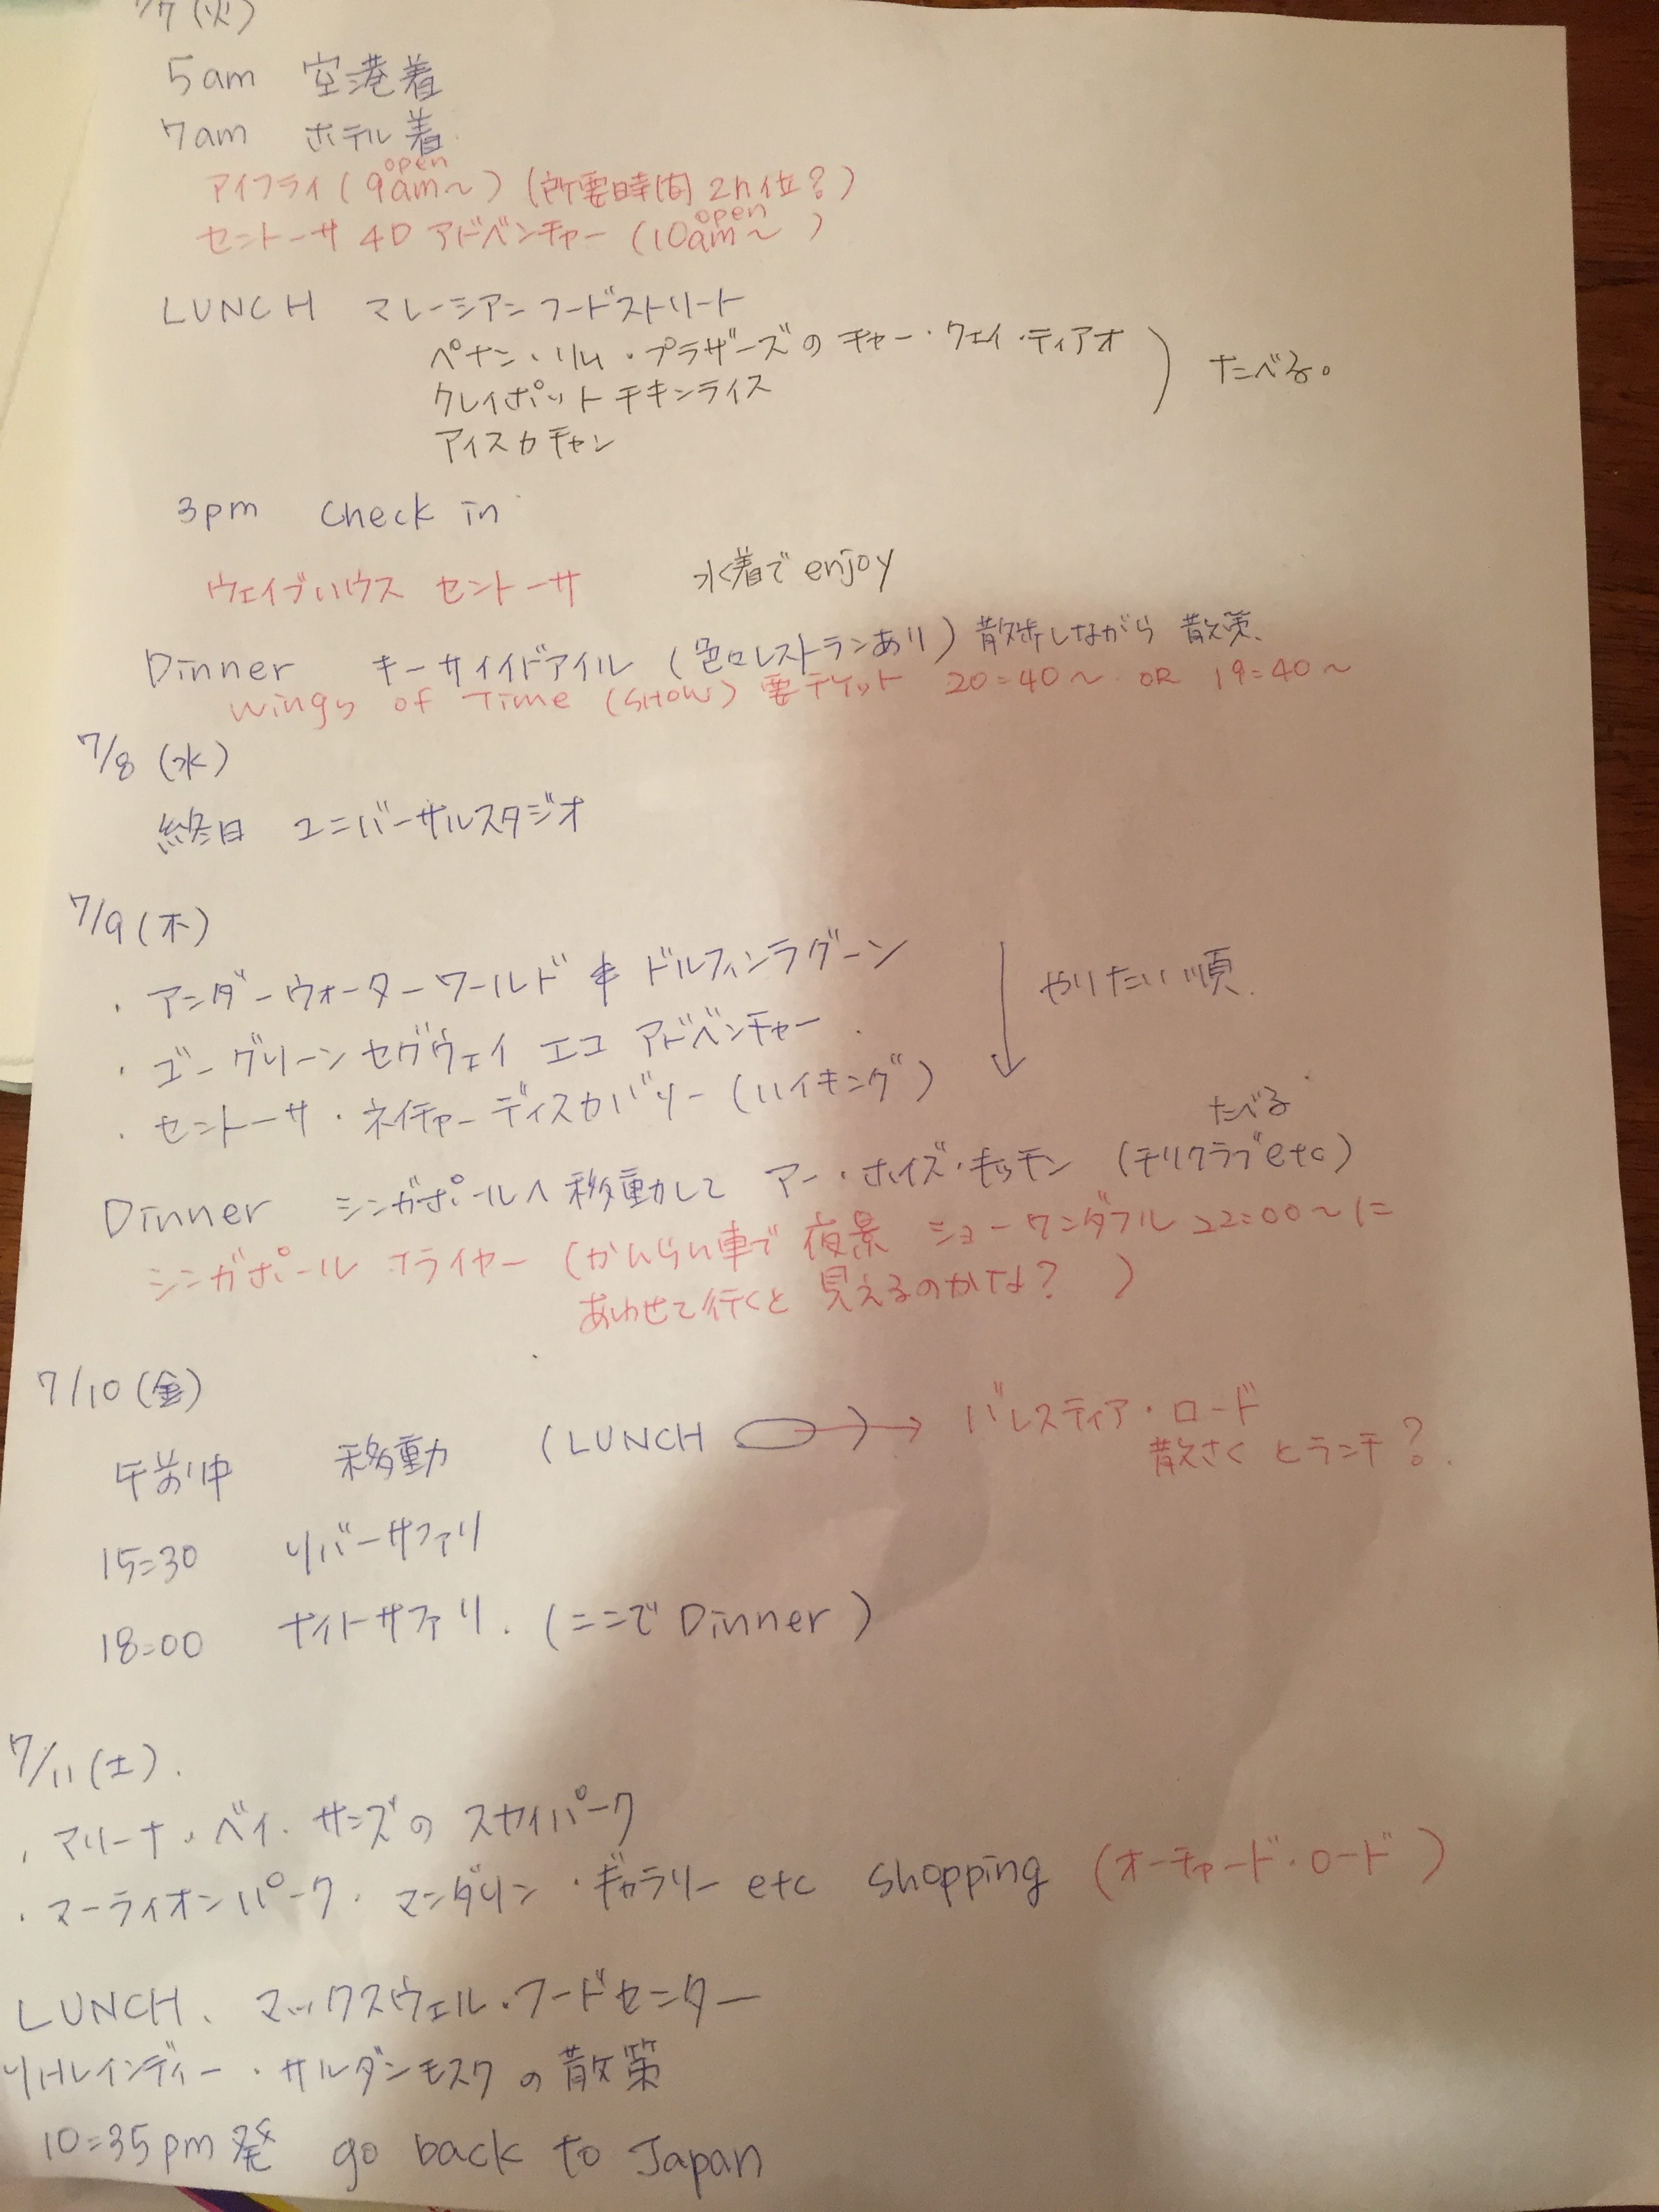 /7(火)
5am 空港着
7am ホテル着
アイフライ(9am~ open)(所要時間 2h位?)
セントーサ 4D アドベンチャー(10am~ open)
LUNCH マレーシアンフードストリート
ペナン・リム・ブラザーズのチャー・クェイ・ティアオ
クレイポットチキンライス
アイスカチャン
たべる。
3pm Check in
ウェイブハウス セントーサ 水着でenjoy
Dinner キーサイドアイル(色々レストランあり)散歩しながら散策、
Wings of Time (SHOW) 要チケット 20:40~ OR 19:40~
7/8(水)
終日 ユニバーサルスタジオ
7/9(木)
・アンダーウォーターワールド & ドルフィンラグーン
・ゴーグリーンセグウェイ エコ アドベンチャー
・セントーサ・ネイチャーディスカバリー(ハイキング)
やりたい順
Dinner シンガポールへ移動して アー・ホイズ・キッチン(チリクラブetc)たべる
シンガポール フライヤー(かんらん車で 夜景 ショーワンダフル 22:00~に
あわせて行くと 見えるのかな?)
7/10(金)
午前中 移動 (LUNCH ) → バレスティア・ロード
散さくとランチ?
15:30 リバーサファリ
18:00 ナイトサファリ.(ここでDinner)
7/11(土).
・マリーナ・ベイ・サンズのスカイパーク
・マーライオンパーク・マンダリン・ギャラリー etc shopping(オーチャード・ロード)
LUNCH、マックスウェル・フードセンター
リトルインディー・サルタンモスクの散策
10:35pm発 go back to Japan